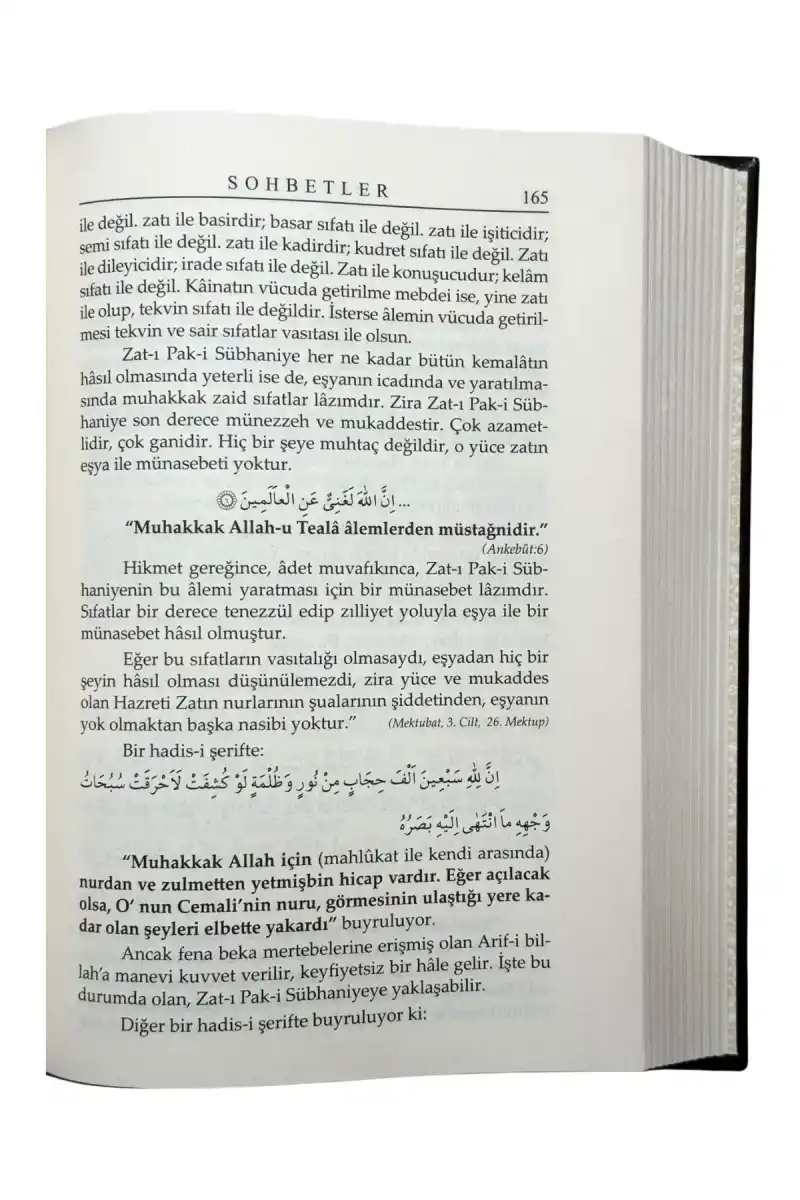 SOHBETLER
165
ile değil. zatı ile basirdir; basar sıfatı ile değil. zatı ile işiticidir;
semi sıfatı ile değil. zatı ile kadirdir; kudret sıfatı ile değil. Zatı
ile dileyicidir; irade sıfatı ile değil. Zatı ile konuşucudur; kelâm
sıfatı ile değil. Kâinatın vücuda getirilme mebdei ise, yine zatı
ile olup, tekvin sıfatı ile değildir. İsterse âlemin vücuda getiril-
mesi tekvin ve sair sıfatlar vasıtası ile olsun.
Zat-ı Pak-i Sübhaniye her ne kadar bütün kemalâtın
hâsıl olmasında yeterli ise de, eşyanın icadında ve yaratılma-
sında muhakkak zaid sıfatlar lâzımdır. Zira Zat-ı Pak-i Süb-
haniye son derece münezzeh ve mukaddestir. Çok azamet-
lidir, çok ganidir. Hiç bir şeye muhtaç değildir, o yüce zatın
eşya ile münasebeti yoktur.
... اِنَّ اللّٰهَ لَغَنِىٌّ عَنِ الْعَالَمِينَ ﴿٦﴾
“Muhakkak Allah-u Tealâ âlemlerden müstağnidir.”
(Ankebût:6)
Hikmet gereğince, âdet muvafıkınca, Zat-ı Pak-i Süb-
haniyenin bu âlemi yaratması için bir münasebet lâzımdır.
Sıfatlar bir derece tenezzül edip zılliyet yoluyla eşya ile bir
münasebet hâsıl olmuştur.
Eğer bu sıfatların vasıtalığı olmasaydı, eşyadan hiç bir
şeyin hâsıl olması düşünülemezdi, zira yüce ve mukaddes
olan Hazreti Zatın nurlarının şualarının şiddetinden, eşyanın
yok olmaktan başka nasibi yoktur.” (Mektubat, 3. Cilt, 26. Mektup)
Bir hadis-i şerifte:
اِنَّ لِلّٰهِ سَبْعِينَ اَلْفَ حِجَابٍ مِنْ نُورٍ وَظُلْمَةٍ لَوْ كُشِفَتْ لَاَحْرَقَتْ سُبُحَاتُ
وَجْهِهِ مَا انْتَهٰى اِلَيْهِ بَصَرُهُ
“Muhakkak Allah için (mahlûkat ile kendi arasında)
nurdan ve zulmetten yetmişbin hicap vardır. Eğer açılacak
olsa, O’ nun Cemali’nin nuru, görmesinin ulaştığı yere ka-
dar olan şeyleri elbette yakardı” buyruluyor.
Ancak fena beka mertebelerine erişmiş olan Arif-i bil-
lah’a manevi kuvvet verilir, keyfiyetsiz bir hâle gelir. İşte bu
durumda olan, Zat-ı Pak-i Sübhaniyeye yaklaşabilir.
Diğer bir hadis-i şerifte buyruluyor ki: